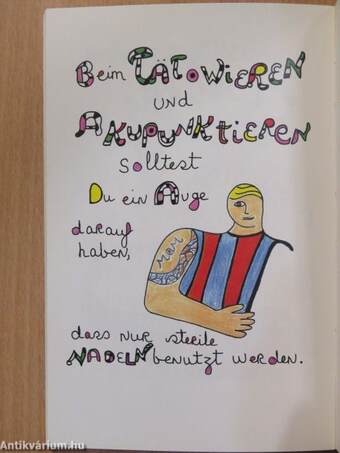 Beim TÄTOWIEREN
und
AKUPUNKTIEREN
solltest
Du ein Auge
darauf
haben,
MOM
dass nur sterile
NADELN benutzt werden.
Antikvárium.hu